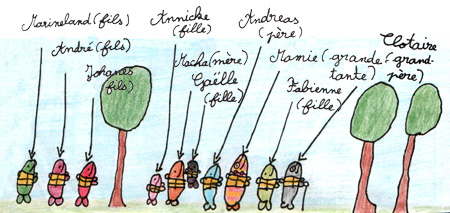 Marineland (fils)
André (fils)
Johanes
(fils)
Annicke
(fille)
Macha (mère)
Gaëlle
(fille)
Andreas
(père)
Mamie (grande-
tante)
Fabienne
(fille)
Clotaire
(grand-
père)